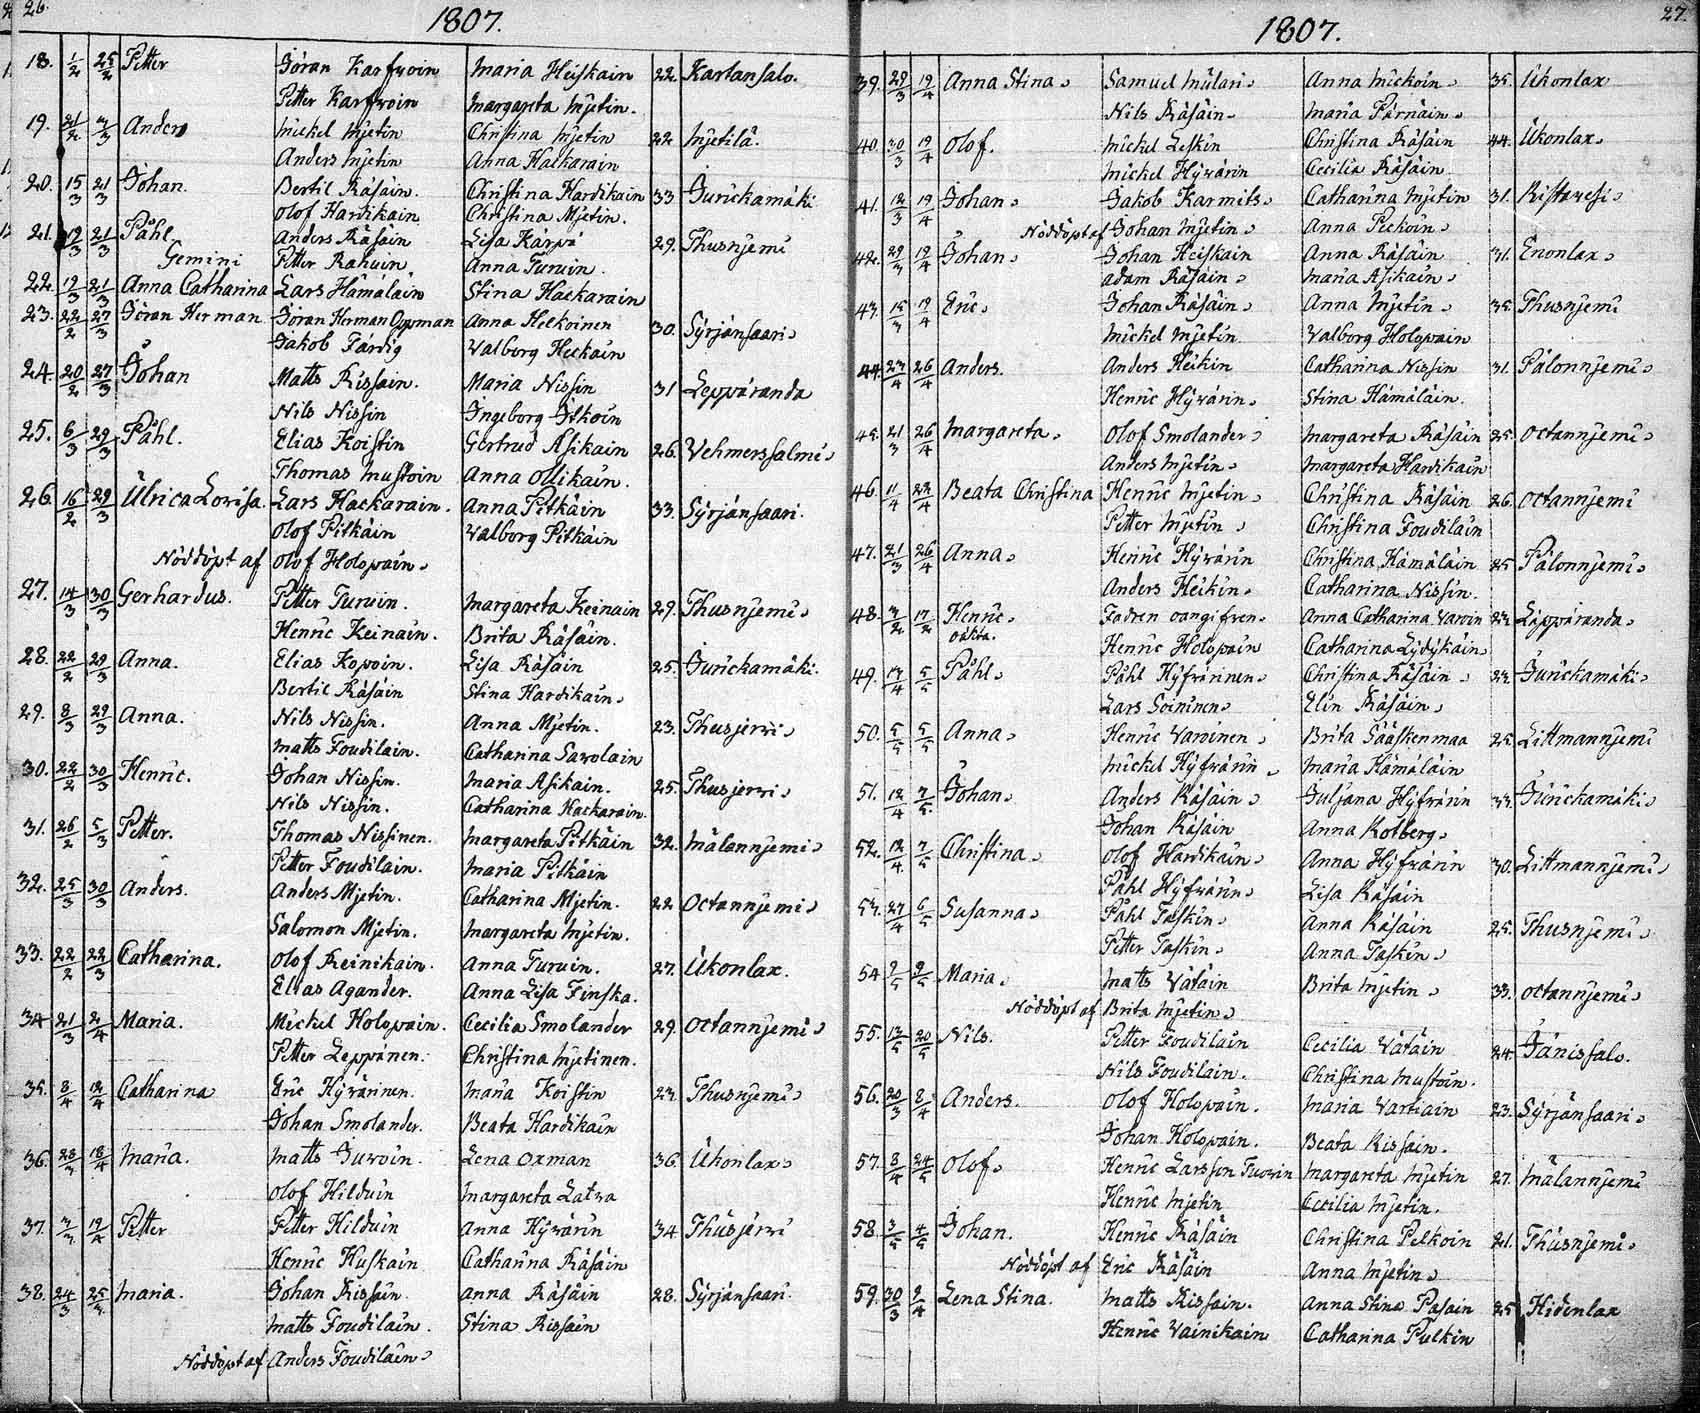 26.
1807.
18. 1/2 25/2 Petter Göran Karfwoin Maria Heiskain 22. Kartansalo.
Petter Karfwoin Margareta Mjetin.
19. 21/2 3/3 Anders Mickel Mjetin Christina Mjetin 22 Mjetilä.
Anders Mjetin Anna Hackarain
20. 15/3 21/3 Johan. Bertil Räsäin. Christina Hardikain 33 Jurickamäki
Olof Hardikain Christina Mjetin.
21. 19/3 21/3 Påhl Anders Räsäin Lisa Kärpä 29. Thusnjemi
Gemini Petter Rahuin Anna Turuin.
22. 19/3 21/3 Anna Catharina Lars Hämäläin Stina Hackarain
23. 22/2 27/3 Göran Herman Göran Herman Oppman Anna Helkoinen 30. Syrjänsaari
Jakob Färdig Valborg Heckain
24. 20/2 27/3 Johan Matts Rissain. Maria Nissin 31 Leppäranda
Nils Nissin Ingeborg Itkoin
25. 6/3 29/3 Påhl. Elias Koistin Gertrud Asikain 26. Vehmerssalmi
Thomas Mustoin Anna Ollikain.
26. 16/2 29/3 Ulrica Lovisa. Lars Hackarain. Anna Pitkäin 33. Syrjänsaari.
Olof Pitkäin Valborg Pitkäin
Nöddöpt af Olof Holopain
27. 14/3 30/3 Gerhardus. Petter Turuin. Margareta Keinain 29. Thusnjemi
Henric Keinain. Brita Räsäin.
28. 22/2 29/3 Anna. Elias Kopoin. Lisa Räsäin 25. Jurickamäki.
Bertil Räsäin Stina Hardikain
29. 8/3 29/3 Anna. Nils Nissin. Anna Mjetin. 23. Thusjerwi
Matts Foudilain. Catharina Savolain
30. 22/2 30/3 Henric. Johan Nissin. Maria Asikain. 25. Thusjerwi
Nils Nissin. Catharina Hackarain.
31. 26/2 5/3 Petter. Thomas Nissinen. Margareta Pitkäin 32. Mälannjemi
Petter Foudilain. Maria Pitkäin
32. 25/3 30/3 Anders. Anders Mjetin. Catharina Mjetin. 22 Octannjemi
Salomon Mjetin. Margareta Mjetin.
33. 22/2 22/3 Catharina. Olof Reinikain. Anna Turuin. 27. Ukonlax.
Elias Agander. Anna Lisa Finska.
34 21/3 2/4 Maria. Mickel Holopain. Cecilia Smolander 29. Octannjemi
Petter Leppänen. Christina Mjetinen.
35. 8/4 12/4 Catharina Eric Hyvärinen. Maria Koistin 23. Thusnjemi
Johan Smolander. Beata Hardikain
36. 28/3 18/4 Maria. Matts Juvoin. Lena Oxman 36. Ukonlax
Olof Hilduin Margareta Latva
37. 3/3 19/4 Petter Petter Hilduin Anna Hyvärin 34 Thusjärvi
Henric Huskain Catharina Räsäin
38. 24/3 Maria. Johan Rissain. Anna Räsäin 28. Syrjänsaari.
Matts Foudilain. Stina Rissain
Nöddöpt af Anders Foudilain
27.
1807.
39. 29/3 19/4 Anna Stina Samuel Mulari Anna Mickoin 35. Ukonlax
Nils Räsäin Maria Pärnäin
40. 30/3 19/4 Olof. Mickel Leskin Christina Räsäin 44. Ukonlax
Mickel Hyvärin Cecilia Räsäin
41. 12/3 19/4 Johan Jakob Karmits Catharina Mjetin 31. Ristavesi
Nöddöpt af Johan Mjetin Anna Peckoin
42. 29/3 19/4 Johan Johan Heiskain Anna Räsäin 31. Enonlax
Adam Räsäin Maria Asikain
43. 15/3 19/4 Eric Johan Räsäin Anna Mjetin 35. Thusnjemi
Mickel Mjetin Valborg Holopain
44. 23/4 26/4 Anders. Anders Heikin Catharina Nissin 31. Pålonnjemi
Henric Hyvärin Stina Hämäläin
45. 21/3 26/4 Margareta. Olof Smolander Margareta Räsäin 25. Octannjemi
Anders Mjetin Margareta Hardikain
46. 11/4 Beata Christina Henric Mjetin Christina Räsäin 26. Octannjemi
Petter Mjetin Christina Foudilain
47. 21/3 26/4 Anna Henric Hyvärin Christina Hämäläin 25 Pålonnjemi
Anders Heikin Catharina Nissin.
48. 17/2 Henric Fadren oangifven Anna Catharina Varoin 23. Läppäranda
oäkta. Henric Holopain Catharina Lydykäin
49. 17/4 5/5 Påhl Påhl Hyfvärinen Christina Räsäin 23. Jurickamäki
Lars Soininen Elin Räsäin
50. 5/5 5/5 Anna Henric Varoinen Brita Sääskenmaa 25. Littmannjemi
Mickel Hyfvärin Maria Hämäläin
51. 12/4 7/5 Johan Anders Räsäin Juljana Hyfvärin 33. Jurickamäki
Johan Räsäin Anna Kolberg
52. 12/4 7/5 Christina Olof Hardikain Anna Hyfvärin 30. Littmannjemi
Påhl Hyfvärin Lisa Räsäin
53. 27/4 6/5 Susanna Påhl Taskin Anna Räsäin 25. Thusnjemi
Petter Taskin Anna Taskin
54 9/5 9/5 Maria Matts Vätäin Brita Mjetin 33. Octannjemi
Nöddöpt af Brita Mjetin
55. 13/5 20/5 Nils. Petter Foudilain Cecilia Vätäin 24. Jänissalo.
Nils Foudilain. Christina Mustoin.
56. 20/3 8/4 Anders. Olof Holopain. Maria Vartiain 23. Syrjänsaari
Johan Holopain. Beata Rissain.
57. 8/4 24/5 Olof Henric Larsson Tuovin Margareta Mjetin 27. Mälannjemi
Henric Mjetin Cecilia Mjetin.
58. 3/5 4/5 Johan. Henric Räsäin Christina Pelkoin 21. Thusnjemi
Nöddöpt af Eric Räsäin Anna Mjetin
59. 30/3 2/4 Lena Stina. Matts Rissain. Anna Stina Pasain 25 Hidenlax
Henric Vainikain Catharina Pulkin